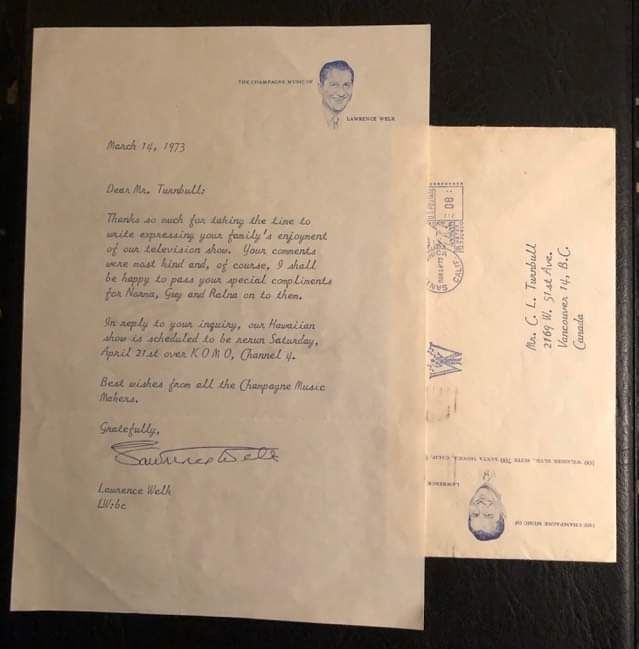 THE CHAMPAGNE MUSIC OF
LAWRENCE WELK
March 14, 1973
Dear Mr. Turnbull:
Thanks so much for taking the time to
write expressing your family's enjoyment
of our television show. Your comments
were most kind and, of course, I shall
be happy to pass your special compliments
for Norma, Guy and Ralna on to them.
In reply to your inquiry, our Hawaiian
show is scheduled to be rerun Saturday,
April 21st over K O M O, Channel 4.
Best wishes from all the Champagne Music
Makers.
Gratefully,
Lawrence Welk
Lawrence Welk
LW:bc
Mr. C. L. Turnbull
2169 W. 51st Ave.
Vancouver 14, B.C.
Canada
THE CHAMPAGNE MUSIC OF
LAWRENCE
100 WILSHIRE BLVD., SUITE 700 SANTA MONICA, CALIF.
SAN
CALIF
.08